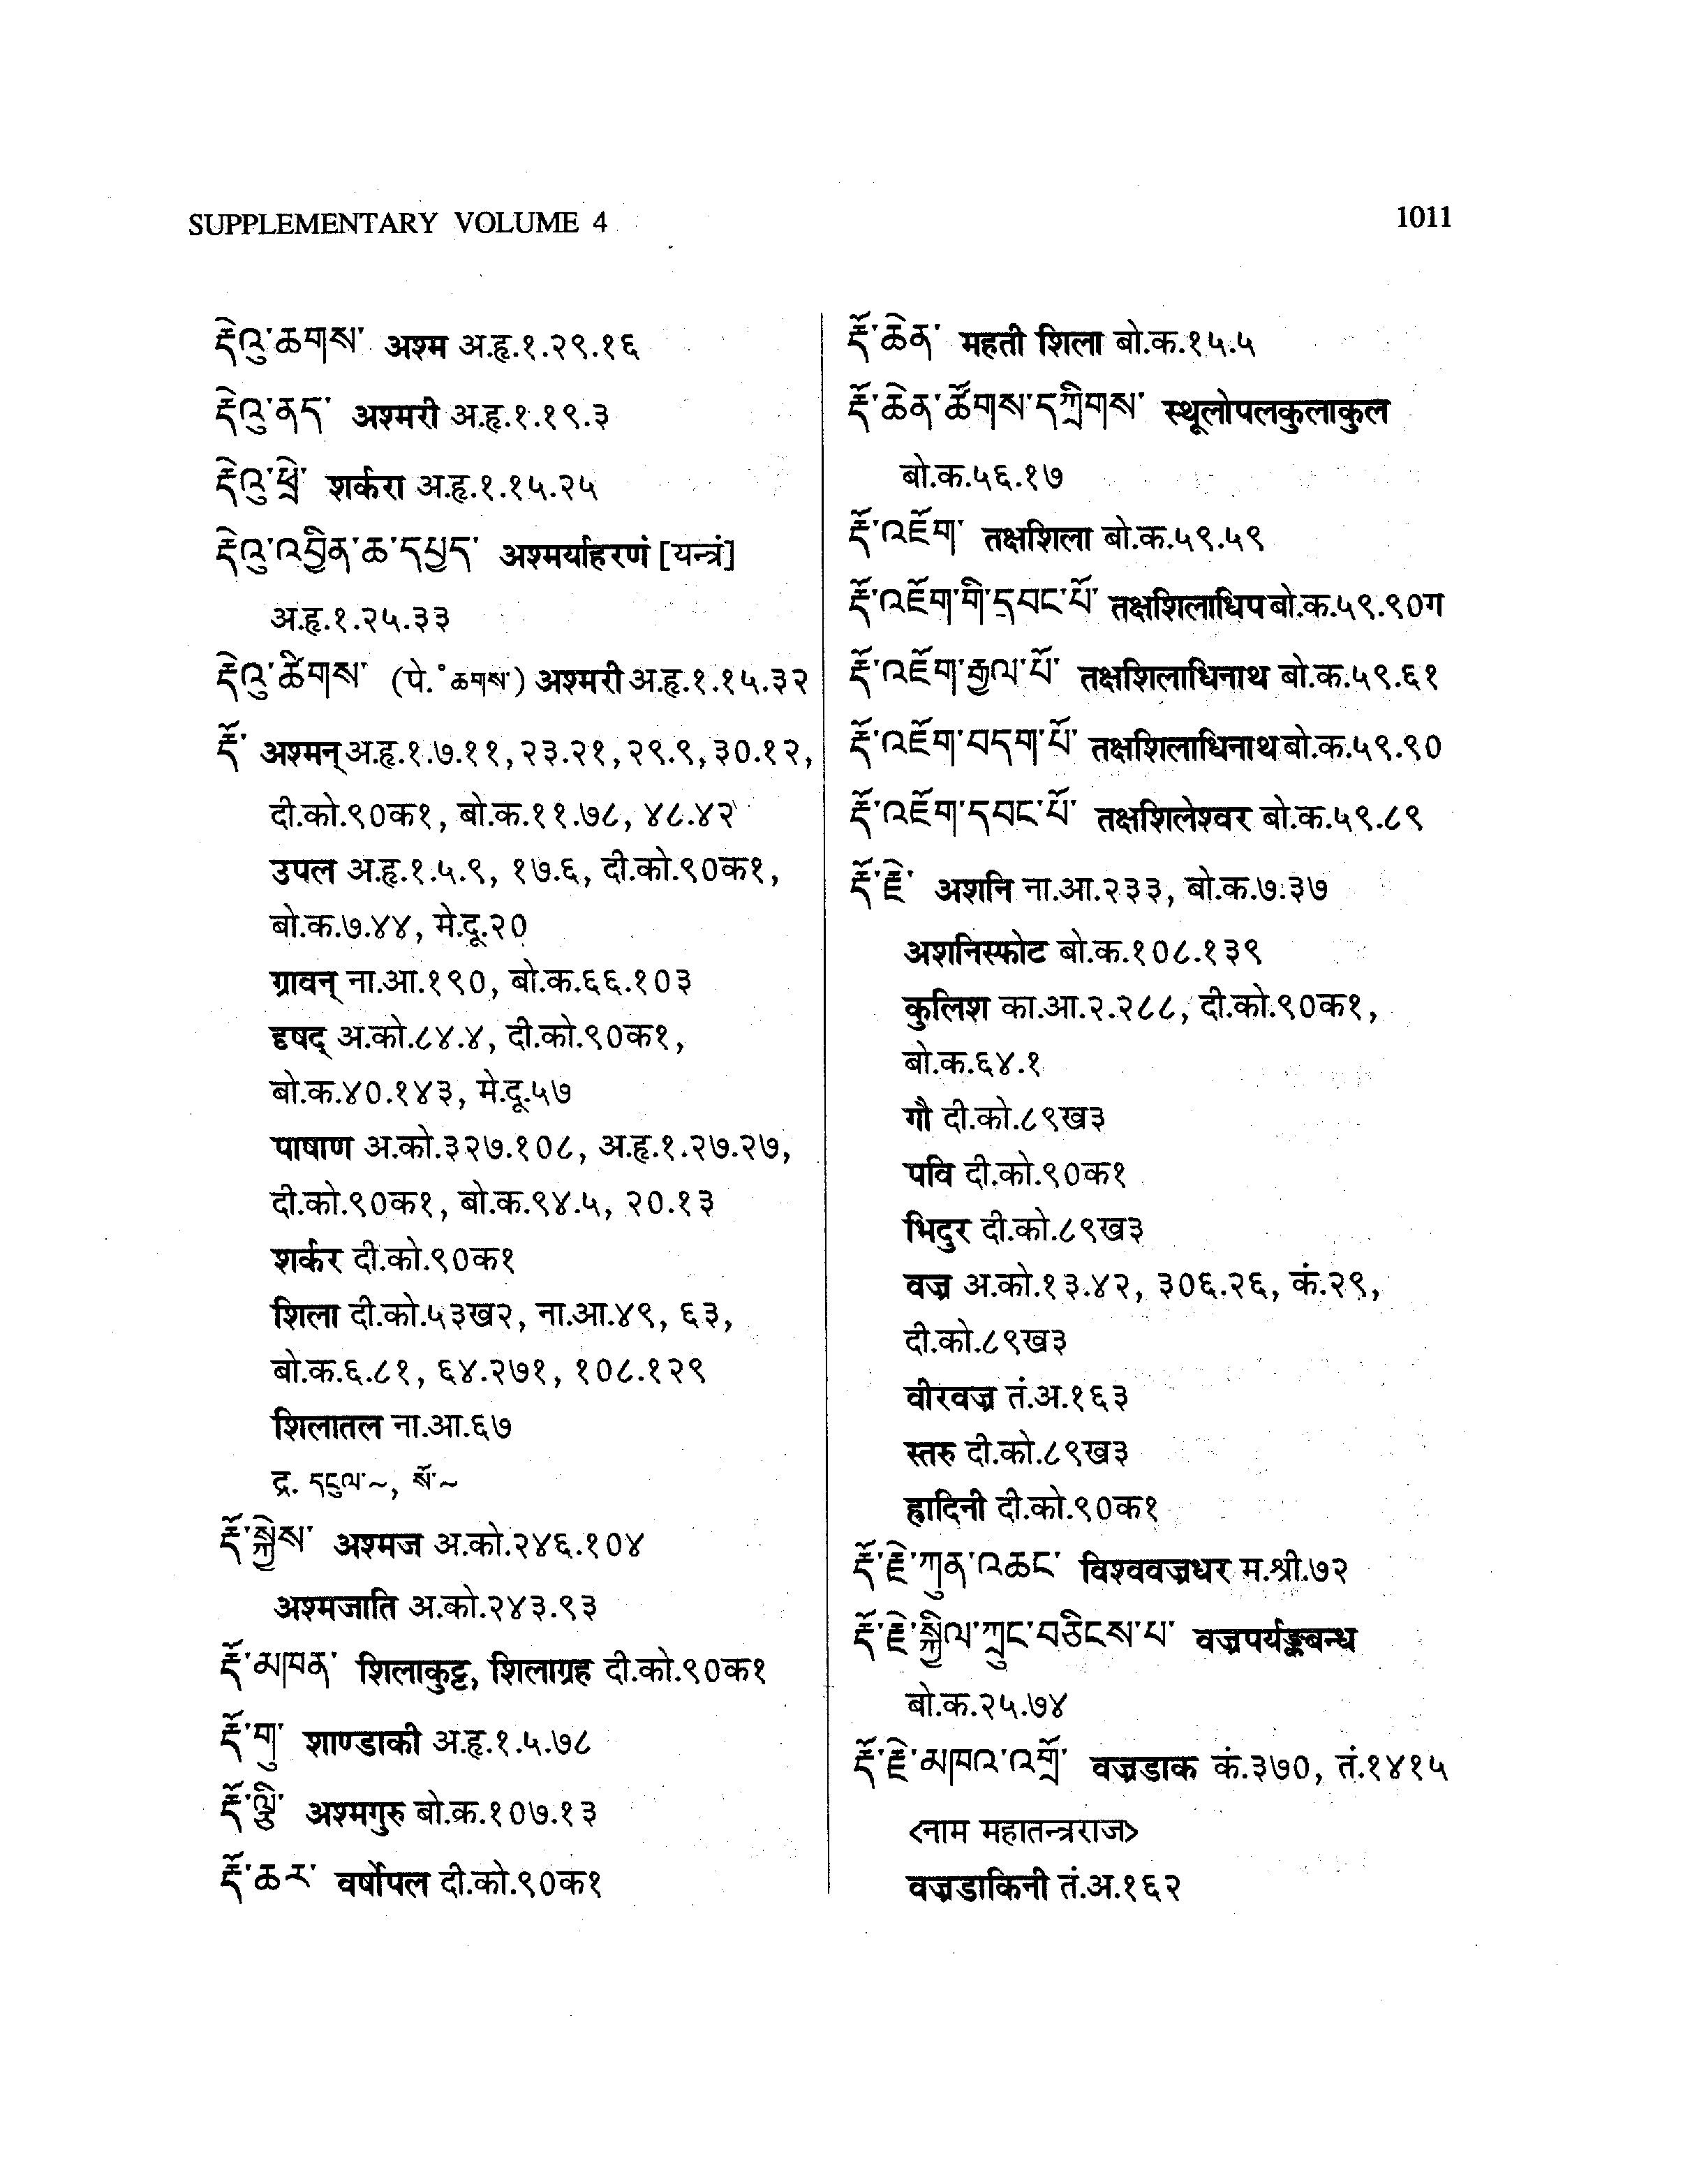 SUPPLEMENTARY VOLUME 4
1011
རྡེའུ་ཆགས་ अश्म अ.हृ.१.२९.१६
རྡེའུ་ནད་ अश्मरी अ.हृ.१.१९.३
རྡེའུ་ཕྲེ་ शर्करा अ.हृ.१.१५.२५
རྡེའུ་འབྱིན་ཆ་དཔྱད་ अश्मर्याहरणं [यन्त्रं]
अ.हृ.१.२५.३३
རྡེའུ་ཚིགས་ (पे.॰ ཆགས་) अश्मरी अ.हृ.१.१५.३२
རྡོ་ अश्मन् अ.हृ.१.७.११, २३.२१, २९.९, ३०.१२,
दी.को.९०क१, बो.क.११.७८, ४८.४२
उपल अ.हृ.१.५.९, १७.६, दी.को.९०क१,
बो.क.७.४४, मे.दू.२०
ग्रावन् ना.आ.१९०, बो.क.६६.१०३
दृषद् अ.को.८४.४, दी.को.९०क१,
बो.क.४०.१४३, मे.दू.५७
पाषाण अ.को.३२७.१०८, अ.हृ.१.२७.२७,
दी.को.९०क१, बो.क.९४.५, २०.१३
शर्कर दी.को.९०क१
शिला दी.को.५३ख२, ना.आ.४९, ६३,
बो.क.६.८१, ६४.२७१, १०८.१२९
शिलातल ना.आ.६७
द्र. དངུལ་~, སོ་~
རྡོ་སྐྱེས་ अश्मज अ.को.२४६.१०४
अश्मजाति अ.को.२४३.९३
རྡོ་མཁན་ शिलाकुट्ट, शिलाग्रह दी.को.९०क१
རྡོ་གུ་ शाण्डाकी अ.हृ.१.५.७८
རྡོ་ལྕི་ अश्मगुरु बो.क.१०७.१३
རྡོ་ཆར་ वर्षोपल दी.को.९०क१
རྡོ་ཆེན་ महती शिला बो.क.१५.५
རྡོ་ཆེན་ཚོགས་དཀྲིགས་ स्थूलोपलकुलाकुल
बो.क.५६.१७
རྡོ་འཇོག་ तक्षशिला बो.क.५९.५९
རྡོ་འཇོག་གི་དབང་པོ་ तक्षशिलाधिप बो.क.५९.९०ग
རྡོ་འཇོག་རྒྱལ་པོ་ तक्षशिलाधिनाथ बो.क.५९.६१
རྡོ་འཇོག་བདག་པོ་ तक्षशिलाधिनाथ बो.क.५९.९०
རྡོ་འཇོག་དབང་པོ་ तक्षशिलेश्वर बो.क.५९.८९
རྡོ་རྗེ་ अशनि ना.आ.२३३, बो.क.७.३७
अशनिस्फोट बो.क.१०८.१३९
कुलिश का.आ.२.२८८, दी.को.९०क१,
बो.क.६४.१
गौ दी.को.८९ख३
पवि दी.को.९०क१
भिदुर दी.को.८९ख३
वज्र अ.को.१३.४२, ३०६.२६, कं.२९,
दी.को.८९ख३
वीरवज्र तं.अ.१६३
स्तरु दी.को.८९ख३
ह्रादिनी दी.को.९०क१
རྡོ་རྗེ་ཀུན་འཆང་ विश्ववज्रधर म.श्री.७२
རྡོ་རྗེ་སྐྱིལ་ཀྲུང་བཅིངས་པ་ वज्रपर्यङ्कबन्ध
बो.क.२५.७४
རྡོ་རྗེ་མཁའ་འགྲོ་ वज्रडाक कं.३७०, तं.१४१५
<नाम महातन्त्रराज>
वज्रडाकिनी तं.अ.१६२